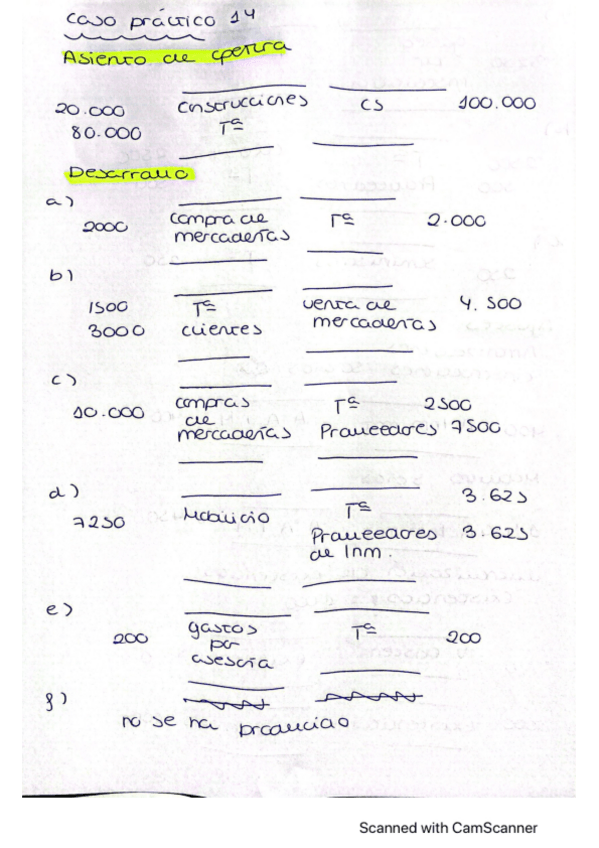 caso práctico 14
Asiento de apertura
20.000 Construcciones CS 100.000
80.000 Tª
Desarrollo
a)
2000 compra de mercaderías Tª 2.000
b)
1500 Tª venta de mercaderías 4.500
3000 clientes
c)
10.000 compras de mercaderías Tª 2500
Proveedores 7500
d)
7250 Mobiliario Tª 3.625
Proveedores de Inm. 3.625
e)
200 gastos por asesoría Tª 200
f)
no se ha producido
Scanned with CamScanner